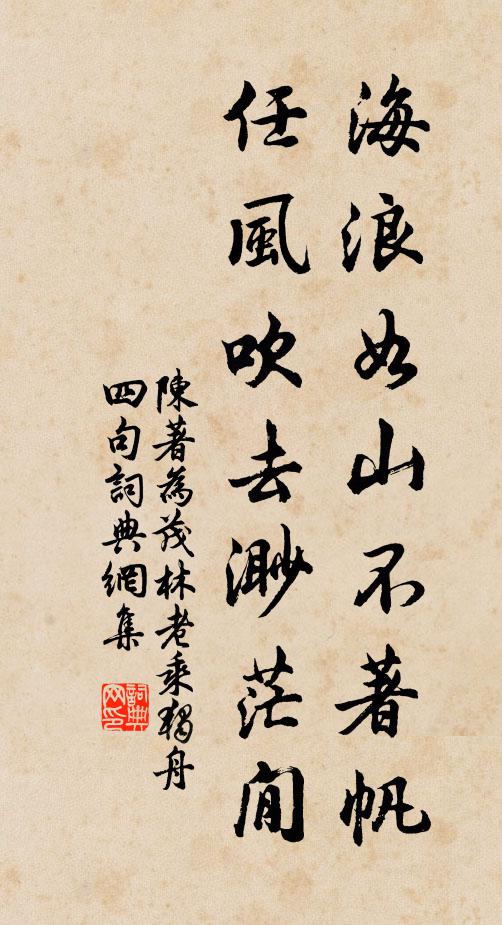 海浪如山不著帆
任風吹去渺茫間
陳著為茂林老乘獨舟
四句詞典網集
詞典网印